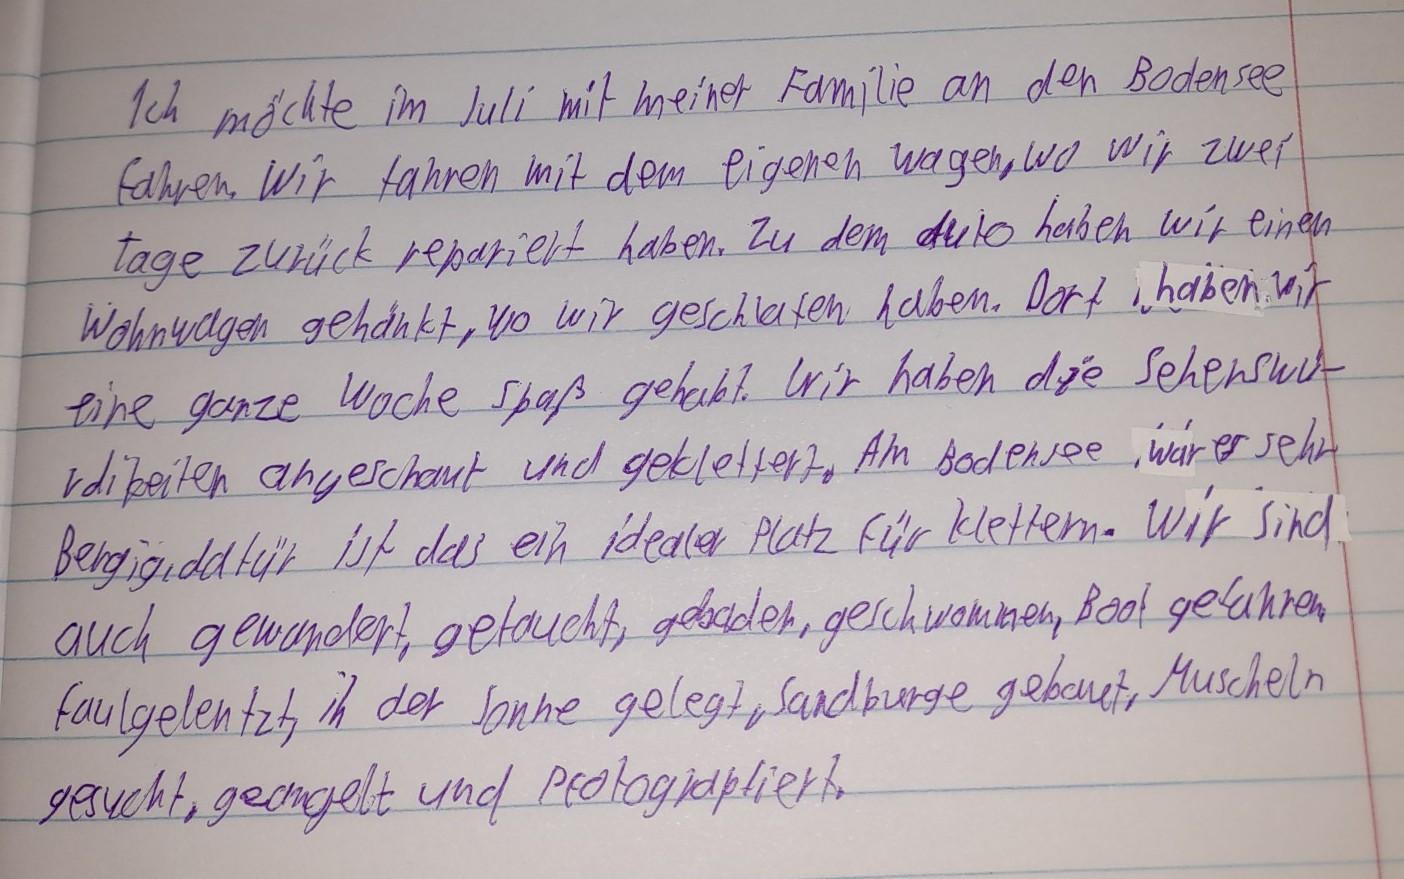 Ich möchte im Juli mit meiner Familie an den Bodensee
fahren. Wir fahren mit dem eigenen wagen, wo wir zwei
tage zurück repariert haben. Zu dem Auto haben wir einen
Wohnwagen gehänkt, wo wir geschlafen haben. Dort haben wir
eine ganze Woche Spaß gehabt. Wir haben die Sehenswü-
rdikeiten angeschaut und geklettert. Am Bodensee war er sehr
Bergig, dafür ist das ein idealer Platz für klettern. Wir sind
auch gewandert, getaucht, gebaden, geschwommen, Boot gefahren,
faulgelentzt, in der Sonne gelegt, Sandburge gebaut, Muscheln
gesucht, geangelt und